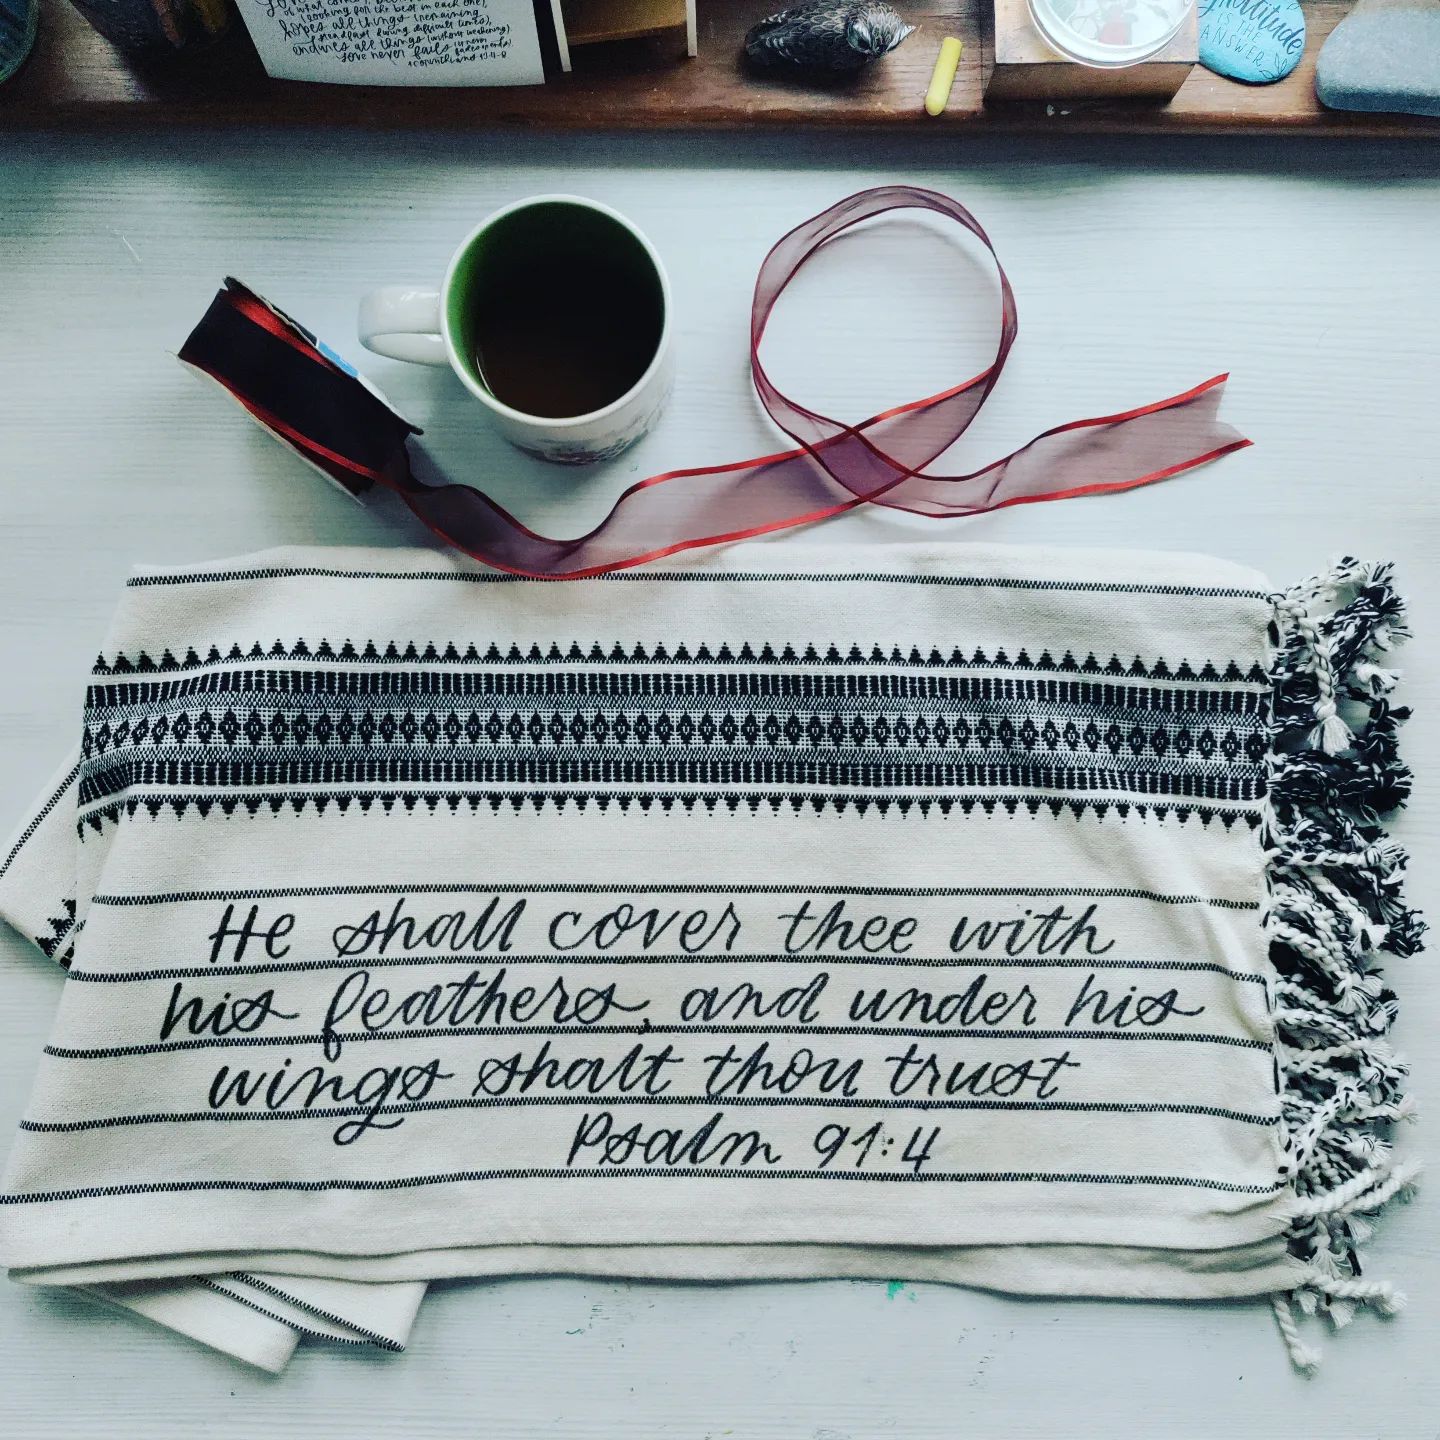 (looking for the best in each one),
hopes all things (remaining
steadfast during difficult times),
endures all things (without weakening)
Love never fails
1 Corinthians 13:4-8
Gratitude
IS THE
ANSWER
He shall cover thee with
his feathers, and under his
wings shalt thou trust
Psalm 91:4